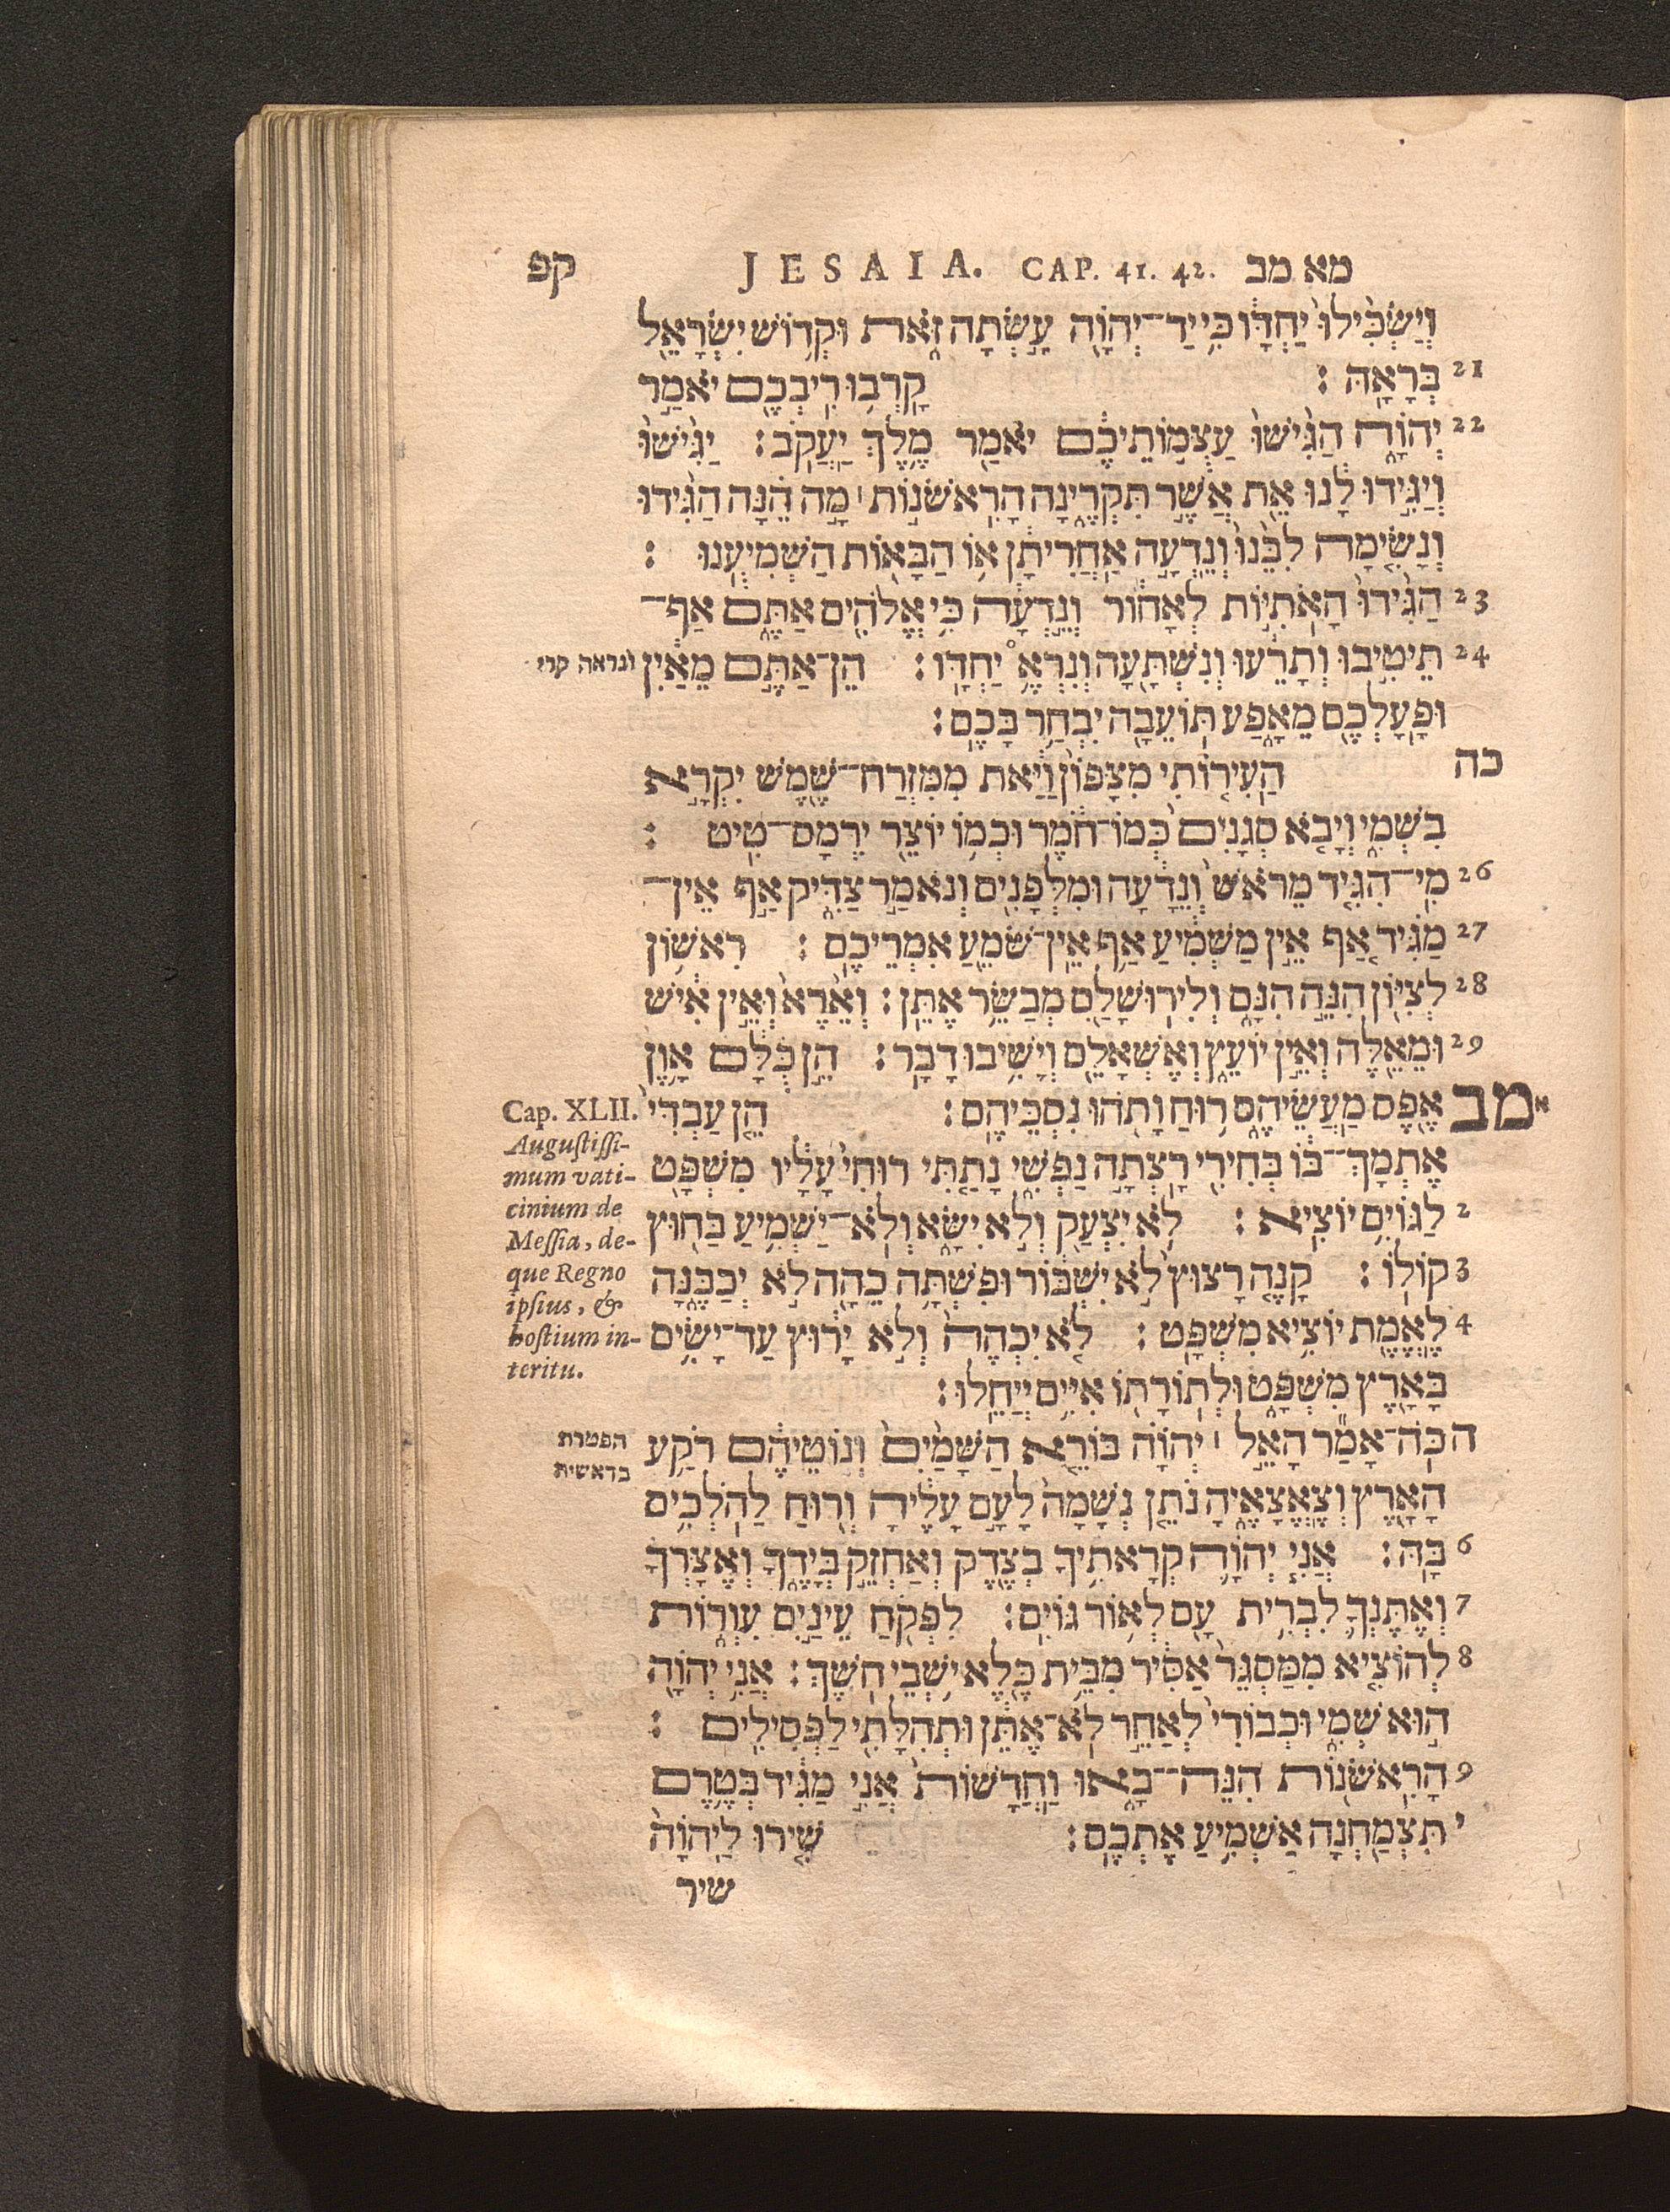 קפ JESAIA. CAP. 41. 42. מא מב
וְיַשְׂכִּ֙ילוּ֙ יַחְדָּ֔ו כִּ֥י יַד־יְהוָ֖ה עָ֣שְׂתָה זֹּ֑את וּקְד֥וֹשׁ יִשְׂרָאֵ֖ל
21 בְּרָאָֽהּ׃ קָרְב֥וּ רִֽיבְכֶ֖ם יֹאמַ֣ר
22 יְהוָ֑ה הַגִּ֙ישׁוּ֙ עַצֻּמ֣וֹתֵיכֶ֔ם יֹאמַ֖ר מֶ֥לֶךְ יַֽעֲקֹֽב׃ יַגִּ֙ישׁוּ֙
וְיַגִּ֣ידוּ לָ֔נוּ אֵ֖ת אֲשֶׁ֣ר תִּקְרֶ֑ינָה הָרִֽאשֹׁנ֣וֹת ׀ מָ֣ה הֵ֗נָּה הַגִּ֙ידוּ֙
וְנָשִׂ֤ימָה לִבֵּ֙נוּ֙ וְנֵדְעָ֣ה אַחֲרִיתָ֔ן א֥וֹ הַבָּא֖וֹת הַשְׁמִיעֻֽנוּ׃
23 הַגִּ֙ידוּ֙ הָאֹתִיּ֣וֹת לְאָח֔וֹר וְנֵ֣דְעָ֔ה כִּ֥י אֱלֹהִ֖ים אַתֶּ֑ם אַף־
24 תֵּיטִ֣יבוּ וְתָרֵ֔עוּ וְנִשְׁתָּ֖עָה וְנִרְאֶ֥ יַחְדָּֽו׃ הֵן־אַתֶּ֣ם מֵאַ֔יִן ונראה קרי
וּפָעָלְכֶ֖ם מֵאָ֑פַע תּוֹעֵבָ֖ה יִבְחַ֥ר בָּכֶֽם׃
כה הַעִיר֤וֹתִי מִצָּפוֹן֙ וַיַּ֔את מִמִּזְרַח־שֶׁ֖מֶשׁ יִקְרָ֣א
בִשְׁמִ֑י וְיָבֹ֤א סְגָנִים֙ כְּמוֹ־חֹ֔מֶר וּכְמ֥וֹ יוֹצֵ֖ר יִרְמָס־טִֽיט׃
26 מִֽי־הִגִּ֤יד מֵרֹאשׁ֙ וְנֵדָ֔עָה וּמִלְּפָנִ֖ים וְנֹאמַ֣ר צַדִּ֑יק אַ֣ף אֵין־
27 מַגִּ֗יד אַ֚ף אֵ֣ין מַשְׁמִ֔יעַ אַ֥ף אֵין־שֹׁמֵ֖עַ אִמְרֵיכֶֽם׃ רִאשׁ֥וֹן
28 לְצִיּ֖וֹן הִנֵּ֣ה הִנָּ֑ם וְלִירוּשָׁלִַ֖ם מְבַשֵּׂ֥ר אֶתֵּֽן׃ וְאֵ֙רֶא֙ וְאֵ֣ין אִ֔ישׁ
29 וּמֵאֵ֖לֶּה וְאֵ֣ין יוֹעֵ֑ץ וְאֶשְׁאָלֵ֖ם וְיָשִׁ֥יבוּ דָבָֽר׃ הֵ֣ן כֻּלָּ֔ם אָ֥וֶן
א מב אֶ֖פֶס מַעֲשֵׂיהֶ֑ם ר֥וּחַ וָתֹ֖הוּ נִסְכֵּיהֶֽם׃ הֵ֤ן עַבְדִּי֙
אֶתְמָךְ־בּ֔וֹ בְּחִירִ֖י רָצְתָ֣ה נַפְשִׁ֑י נָתַ֤תִּי רוּחִי֙ עָלָ֔יו מִשְׁפָּ֖ט
2 לַגּוֹיִ֥ם יוֹצִֽיא׃ לֹ֥א יִצְעַ֖ק וְלֹ֣א יִשָּׂ֑א וְלֹֽא־יַשְׁמִ֥יעַ בַּח֖וּץ
3 קוֹלֽוֹ׃ קָנֶ֤ה רָצוּץ֙ לֹ֣א יִשְׁבּ֔וֹר וּפִשְׁתָּ֥ה כֵהָ֖ה לֹ֣א יְכַבֶּ֑נָּה
4 לֶאֱמֶ֖ת יוֹצִ֥יא מִשְׁפָּֽט׃ לֹ֤א יִכְהֶה֙ וְלֹ֣א יָר֔וּץ עַד־יָשִׂ֥ים
בָּאָ֖רֶץ מִשְׁפָּ֑ט וּלְתוֹרָת֖וֹ אִיִּ֥ים יְיַחֵֽלוּ׃
ה כֹּֽה־אָמַ֞ר הָאֵ֣ל ׀ יְהוָ֗ה בּוֹרֵ֤א הַשָּׁמַ֙יִם֙ וְנ֣וֹטֵיהֶ֔ם רֹקַ֥ע
הָאָ֖רֶץ וְצֶאֱצָאֶ֑יהָ נֹתֵ֤ן נְשָׁמָה֙ לָעָ֣ם עָלֶ֔יהָ וְר֖וּחַ לַהֹלְכִ֥ים
6 בָּֽהּ׃ אֲנִ֧י יְהוָ֛ה קְרָאתִ֥יךָ בְצֶ֖דֶק וְאַחְזֵ֣ק בְּיָדֶ֑ךָ וְאֶצָּרְךָ֗
7 וְאֶתֶּנְךָ֛ לִבְרִ֥ית עָ֖ם לְא֥וֹר גּוֹיִֽם׃ לִפְקֹ֖חַ עֵינַ֣יִם עִוְר֑וֹת
8 לְהוֹצִ֤יא מִמַּסְגֵּר֙ אַסִּ֔יר מִבֵּ֥ית כֶּ֖לֶא יֹ֥שְׁבֵי חֹֽשֶׁךְ׃ אֲנִ֥י יְהוָ֖ה
ה֣וּא שְׁמִ֑י וּכְבוֹדִי֙ לְאַחֵ֣ר לֹֽא־אֶתֵּ֔ן וּתְהִלָּתִ֖י לַפְּסִילִֽים׃
9 הָרִֽאשֹׁנ֖וֹת הִנֵּה־בָ֑אוּ וַֽחֲדָשׁוֹת֙ אֲנִ֣י מַגִּ֔יד בְּטֶ֥רֶם
י תִּצְמַ֖חְנָה אַשְׁמִ֥יעַ אֶתְכֶֽם׃ שִׁ֤ירוּ לַֽיהוָה֙
שיר
Cap. XLII.
Augustissi-
mum vati-
cinium de
Messia, de-
que Regno
ipsius, &
hostium in-
teritu.
הפטרת
בראשית